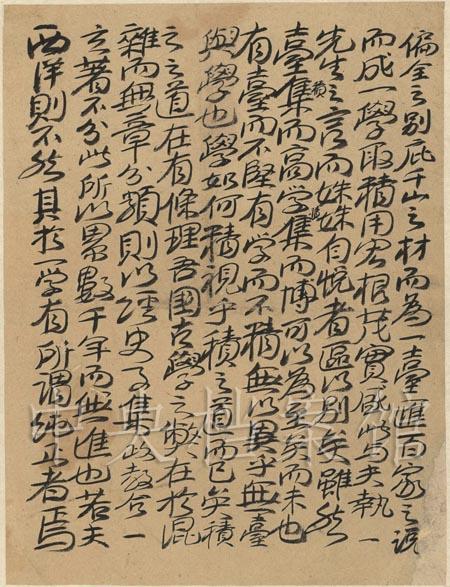 偏全之別庀千山之材而為一臺匯百家之说
而成一學取精用宏根茂實盛此與夫執一
先生之言而姝姝自悅者區以別矣雖然
臺集而高学集而博可以為至矣而未也
積
有臺而不堅有学而不精無以異乎無臺
與學也學如何精視乎積之道而已矣積
之之道在有條理吾國古學之弊在於混
雜而無章分類則以经史子集政教合一
玄著不分此所以累數千年而無進也若夫
西洋則不然其於一学有所謂純正者焉
中央档案馆